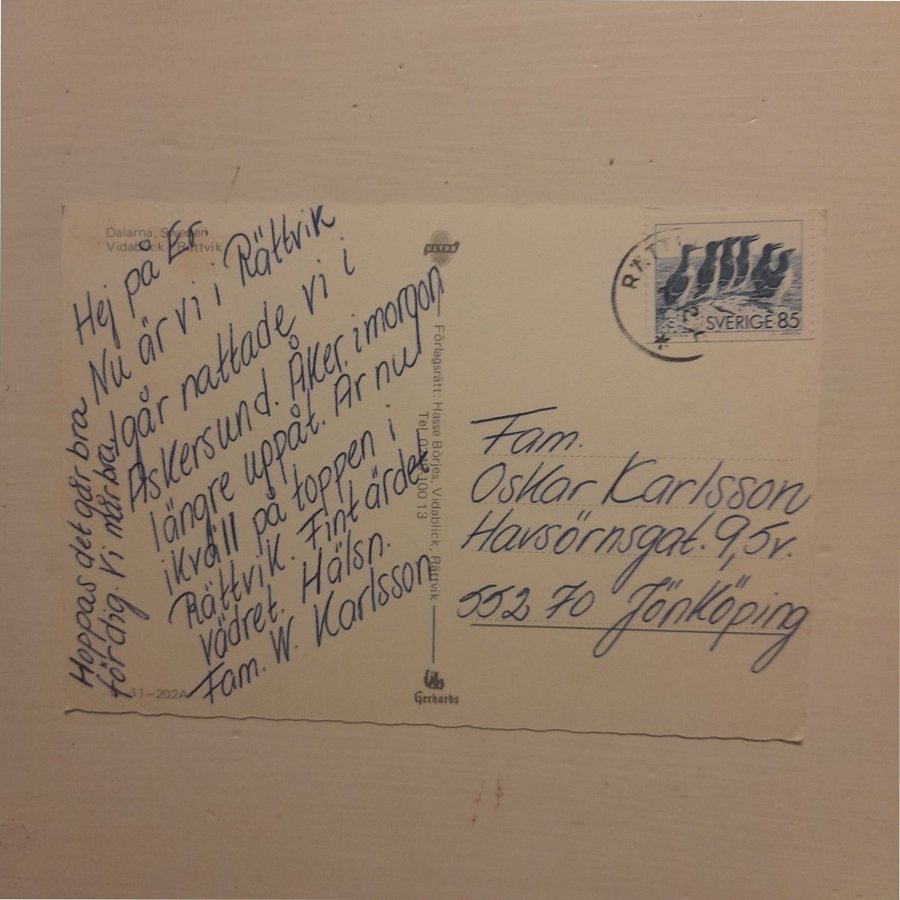 Dalarna, Sweden
Vidablick, Rättvik
Hej på Er
Nu är vi i Rättvik
Igår nattade vi i
Askersund. Åker imorgon
längre uppåt. Är nu
ikväll på toppen i
Rättvik. Fint är det
vädret. Hälsn.
Fam. W. Karlsson
Hoppas det går bra
för dig. Vi mår bra.
11-202A
ULTRA
Förlagsrätt: Hasse Börjes, Vidablick, Rättvik
Tel. 100 13
Gerhards
RÄTTV
SVERIGE 85
Fam.
Oskar Karlsson
Havsörnsgat. 9, 5v.
552 70 Jönköping